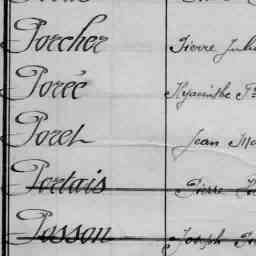 Porcher Pierre
Porée Hyacinthe
Porel Jean
Portais Pierre
Posson Joseph